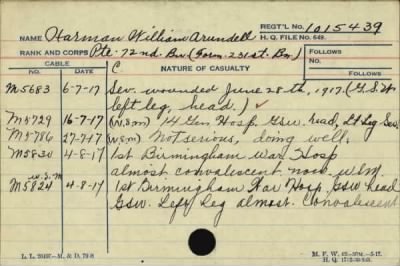 REGT'L NO. 1015439
NAME Harman William Arundell H. Q. FILE No. 649.
RANK AND CORPS Pte. 72nd. Bn (Form. 231st. Bn.) FOLLOWS
CABLE
NO. DATE C. NATURE OF CASUALTY FOLLOWS
M5683 6-7-17 Sev. wounded June 28th, 1917. (G.S.W.
left leg, head.) ✓
M5729 16-7-17 (W.S.M) 14 Gen. Hosp. Gsw. head, Lt Leg Sev.
M5786 27-7-17 (W.S.M) Not serious, doing well.
M5830 4-8-17 1st Birmingham War Hosp
almost convalescent now. WSM.
W.S.M
M5824 4-8-17 1st Birmingham War Hosp, GSW head
GSW. Left leg almost. Convalescent
L. L. M. & D. M. F. W.
H. Q.